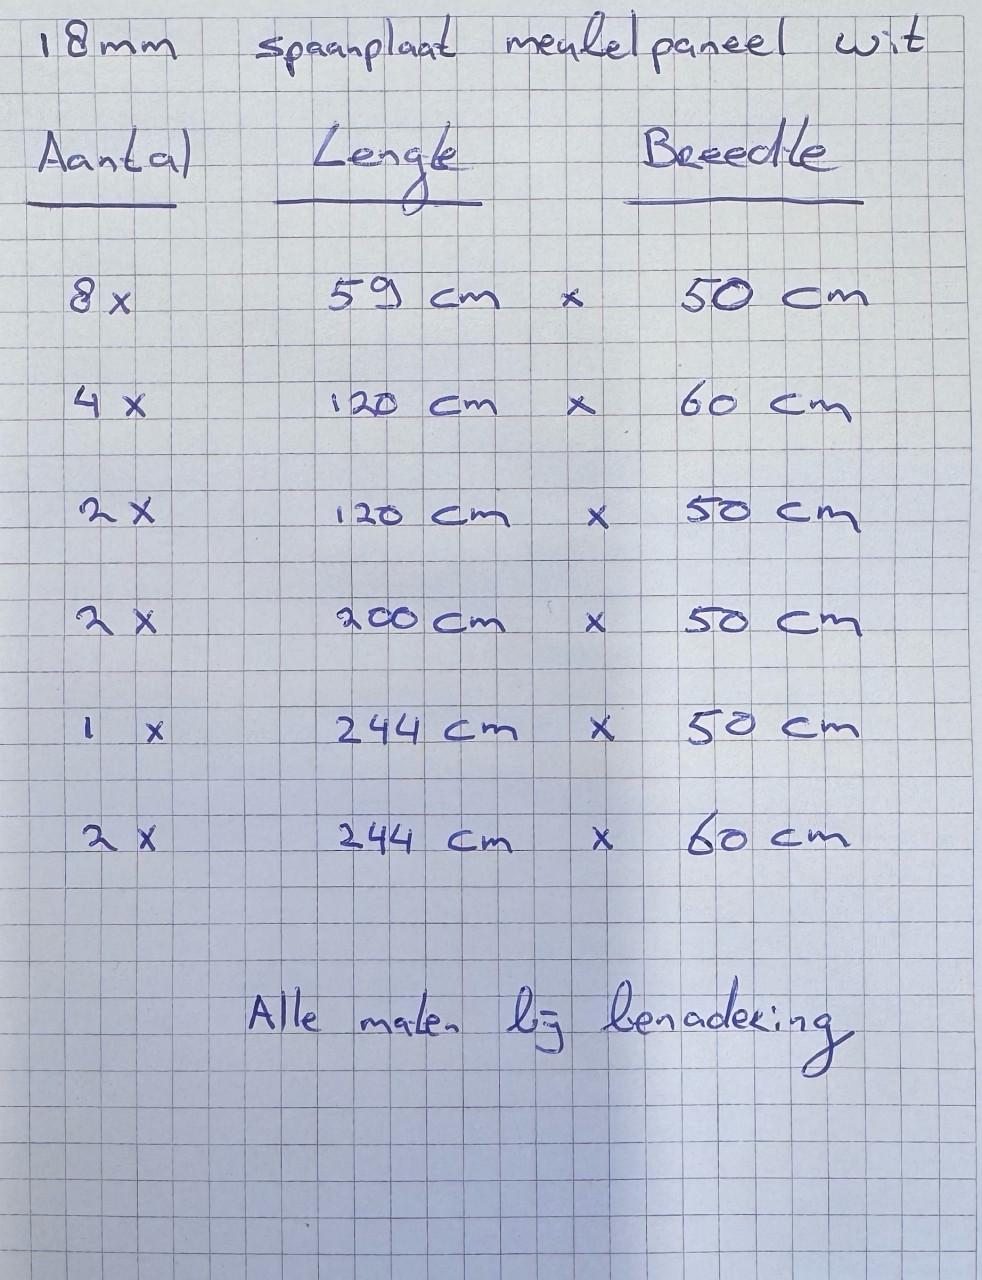 18mm spaanplaat meubelpaneel wit
Aantal Lengte Breedte
8x 59 cm x 50 cm
4x 120 cm x 60 cm
2x 120 cm x 50 cm
2x 200 cm x 50 cm
1 x 244 cm x 50 cm
2x 244 cm x 60 cm
Alle maten bij benadering